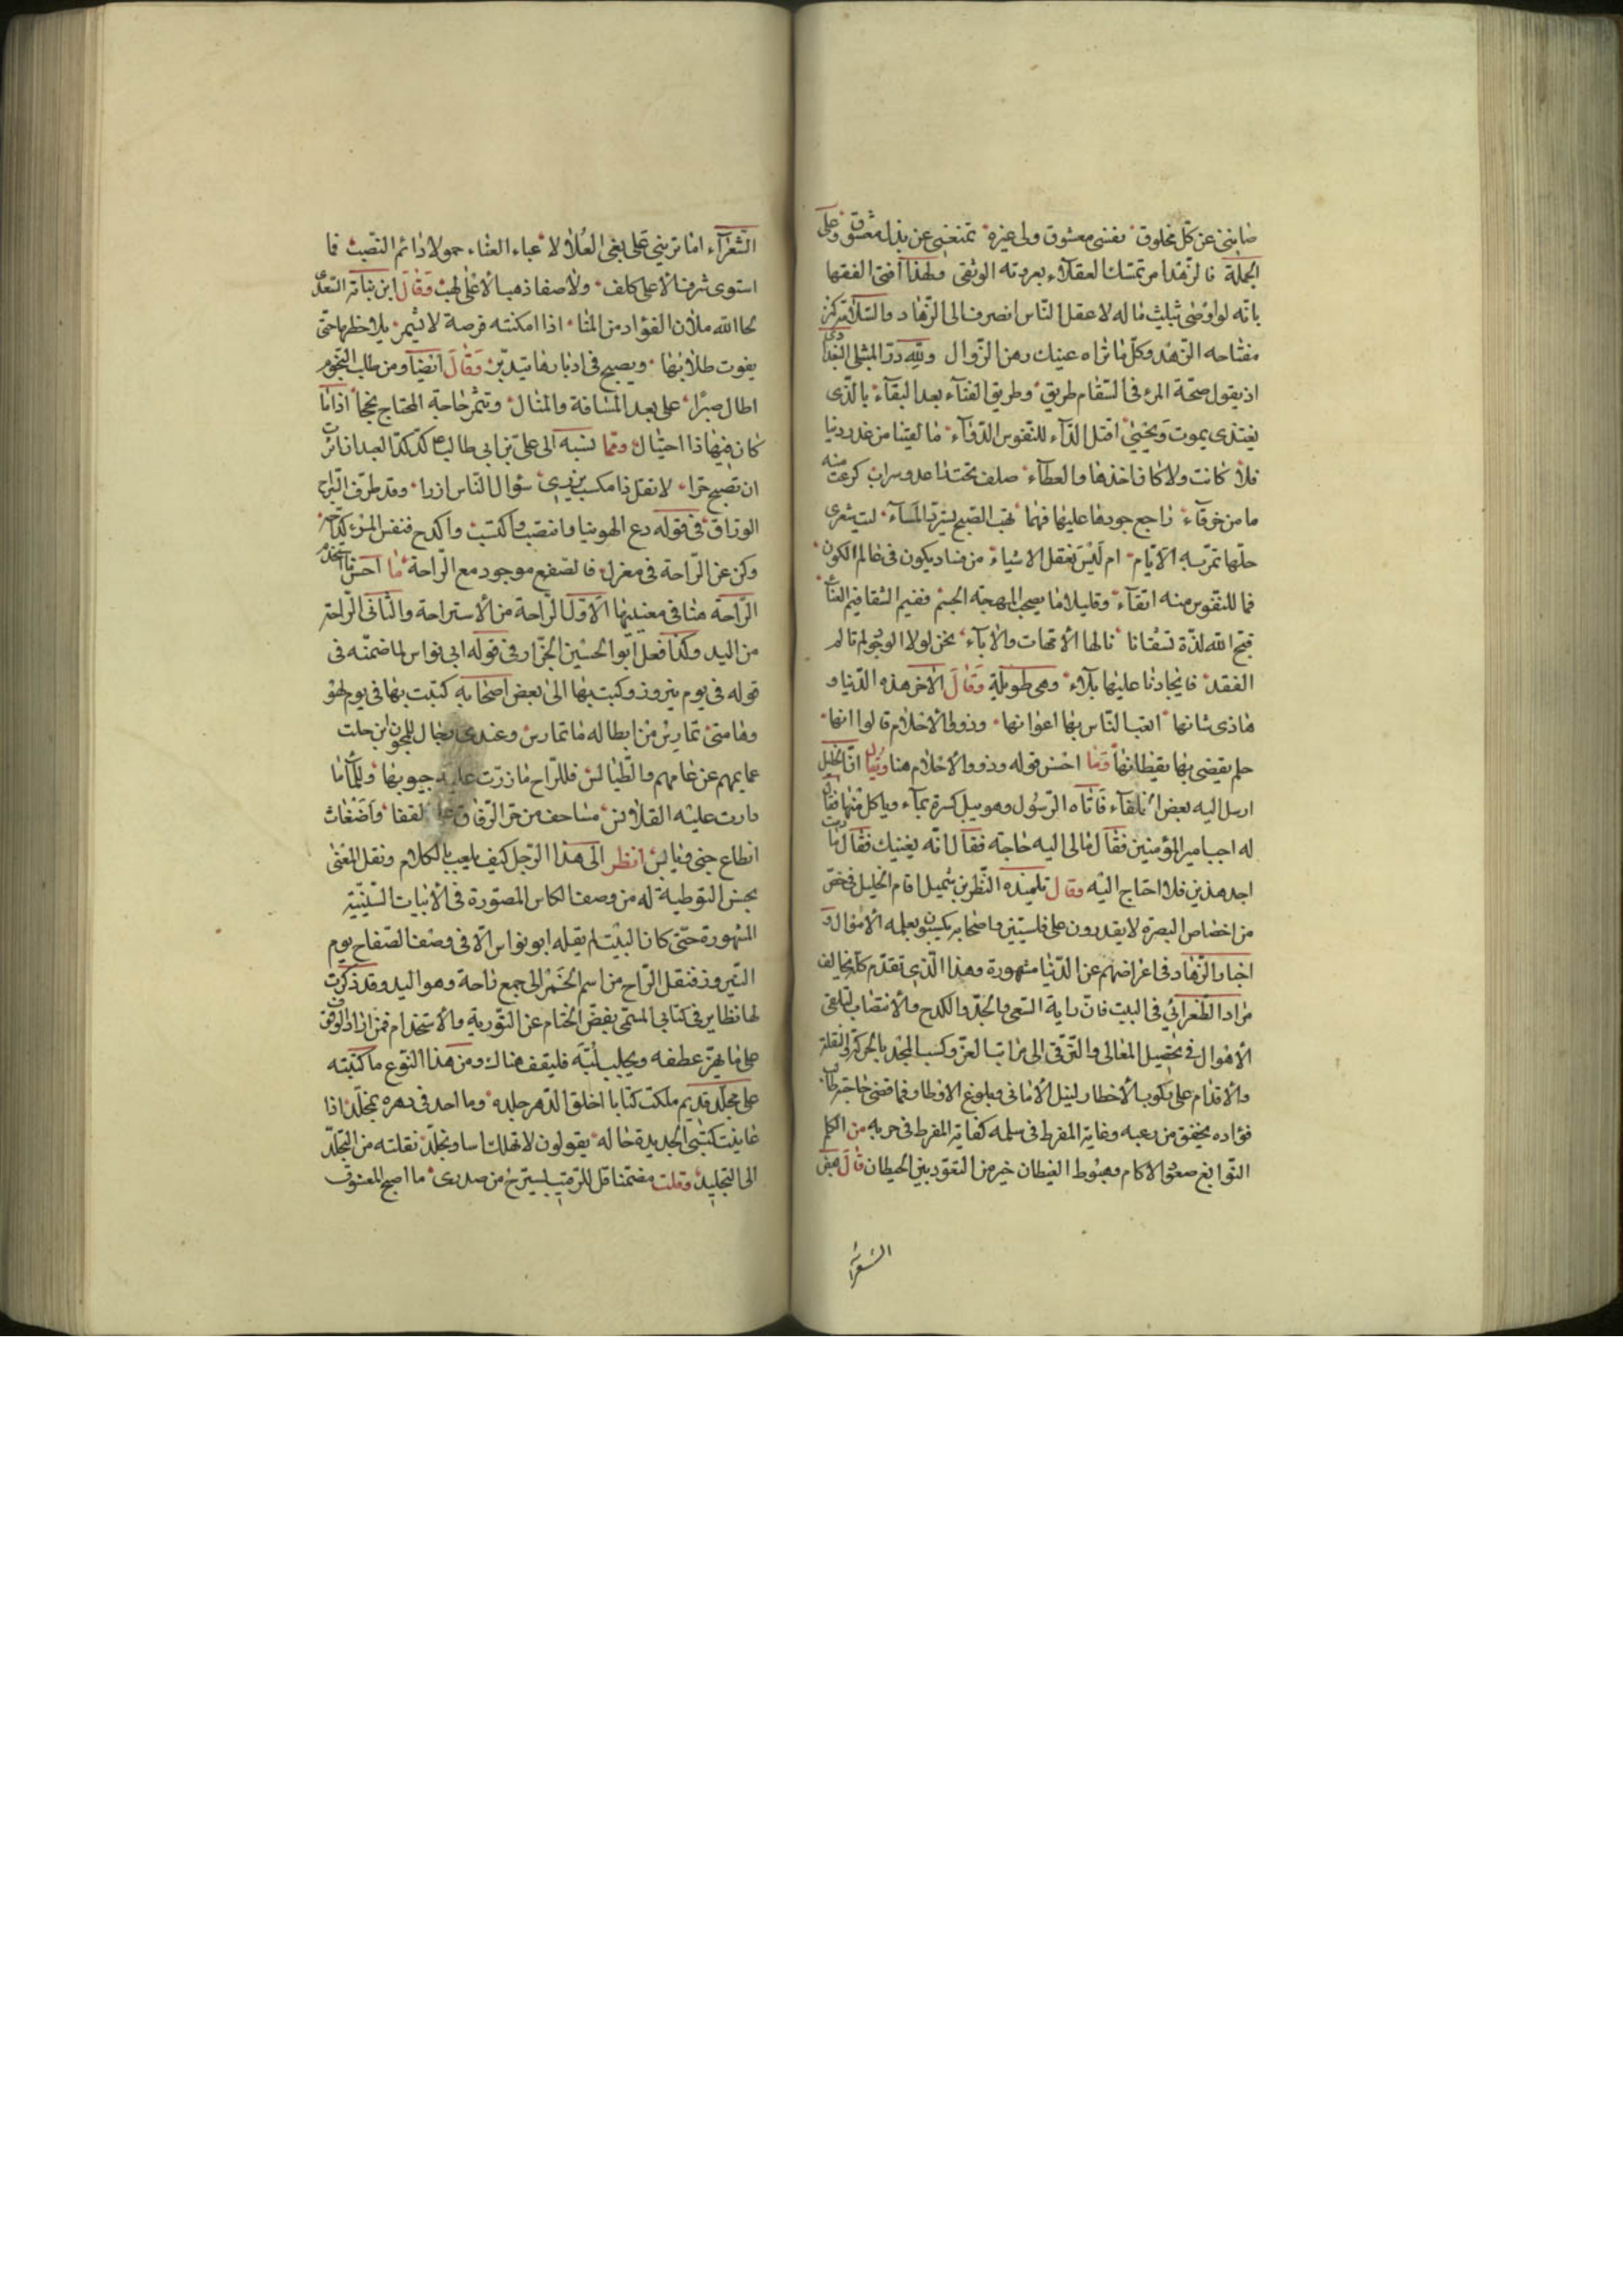 صابنى عن كل مخلوق نفسى معشوق ولى غيرة تمنعنى عن بذل معشوق وعلى
الجملة فالزهد امر تمسك العقلاء بعروته الوثقى ولهذا افتى الفقها
بانه لو اوصى بثلث ماله لاعقل الناس انصرف الى الزهاد والسلامة كنز
مفتاحه الزهد وكل ما تراه عينك رهن الزوال ولله در الشبلى البغدادى
اذ يقول صحة المرء فى السقام طريق وطريق الفنآء بعد البقآء بالذى
يغتذى يموت ويحيى اقتل الدآء للنفوس الدوآء ما لقينا من غدر دنيا
فلا كانت ولا كان اخذها والعطآء صلف تحت راعد وسراب كرعت منه
مامن خرقآء راجع جودها عليها فمهما يهب الصبح يسترد المسآء ليت شعرى
حلما تمر به الايام ام ليس تعقل الاشياء من فساد يكون فى عالم الكون
فما للنفوس منه اتقآء وقليلا ما يصحب المهجة الجسم ففيم الشقا فيم العنآء
قبح الله لذة لشقانا نالها الامهات والابآء نحن لولا الوجود لم نالم
الفقد فايجادنا علينا بلاء وهى طويلة وقال الاخر هذه الدنيا و
هاذى شانها اتعب الناس بها اعوانها وذووا الاحلام قالوا انها
حلم يقضى بها يقظانها وما احسن قوله وذووا الاحلام هنا ويقال ان الخليل
ارسل اليه بعض الخلفآء فاتاه الرسول وهو يبل كسرة بمآء وياكل منها فقال
له اجب امير المؤمنين فقال مالى اليه حاجة فقال انه يغنيك فقال ما دمت
اجد هذين فلا احتاج اليه وقال تلميذه النظر بن شميل اقام الخليل فى خص
من اخصاص البصرة لا يقدرون على فلسين واصحابه يكسبون بعلمه الاموال و
اخبار الزهاد فى اعراضهم عن الدنيا مشهورة وهذا الذى تقدم كله يخالف
مراد الطغرائى فى البيت فان راية السعى والجد والكدح والانتصاب لتلقى
الاهوال فى تحصيل المعالى والترقى الى مراتب العز وكسب المجد بالحركة والنقلة
والاقدام على ركوب الاخطار لنيل الامانى وبلوغ الاوطار فما قضى حاجته طالب
فؤاده يخفق من رعبه وغاية المفرط فى سلمه كغاية المفرط فى حربه من الكلم
النوابغ صعود الاكام وهبوط الغيطان خير من القعود بين الحيطان قال بعض
الشعرآء
الشعرآء اما ترينى على بغى العلا لا عباء العناء حمولا دائم النصب فما
استوى شرف الا على كلف ولا صفا ذهب الا على لهب وقال ابن نباتة السعدى
لحا الله ملان الفؤاد من المنا اذا امكنته فرصة لا يشمر يلاحظها حتى
يفوت طلابها ويصبح فى ادبارها يتدبر وقال ايضا ومن طلب النجوم
اطال صبرا على بعد المسافة والمنال وتثمر حاجة المحتاج نجحا اذا ما
كان فيها ذا احتيال ومما ينسبه الى على بن ابى طالب كد كد العبد ان احببت
ان تصبح حرا لا تقل ذا مكسب يزرى سؤال الناس ازرا وقد ظرف السراج
الوراق فى قوله دع الهوينا وانتصب واكتسب واكدح فنفس المرء كداحه
وكن عن الراحة فى معزل فالصفع موجود مع الراحة ما احسن استخدام
الراحة هنا فى معنييها الاول الراحة من الاستراحة والثانى الراحة
من اليد وكذا فعل ابو الحسين الجزار فى قوله ابى نواس لما ضمنه فى
قوله فى يوم نيروز وكتبت بها الى بعض اصحابه كتبت بها فى يوم لهو
وهامتى تمارس من ابطاله ما تمارس وعندى رجال للمجون ترجلت
عمايمهم عن هامهم والطيالس فللراح ما زرت عليه جيوبها وللمآ ما
دارت عليه القلانس مساحب من جر الزقاق على القفا واضغاث
انطاع جنى ويابس انظر الى هذا الرجل كيف يلعب بالكلام ونقل المعنى
بحسن التوطية له من وصف الكاس المصورة فى الابيات السينية
المشهورة حتى كان البيت لم يقله ابو نواس الا فى وصف الصفاح يوم
النيروز فنقل الراح من اسم الخمر الى جمع راحة وهو اليد وقد ذكرت
لها نظاير فى كتابى المسمى بفض الختام عن التورية والاستخدام فمن اراد الوقوف
على ما يهز عطفه ويجلب لبه فليقف هناك ومن هذا النوع ما كتبته
على مجلد قديم ملكت كتابا اخلق الدهر جلده وما احد فى دهره بمخلد اذا
عاينت كتبى الجديدة حاله يقولون لا تهلك اسا وتجلد نقلته من التجلد
الى التجليد وقلت مضمنا قل للرقيب ليسترح من صدرى ما اصبح المعشوق